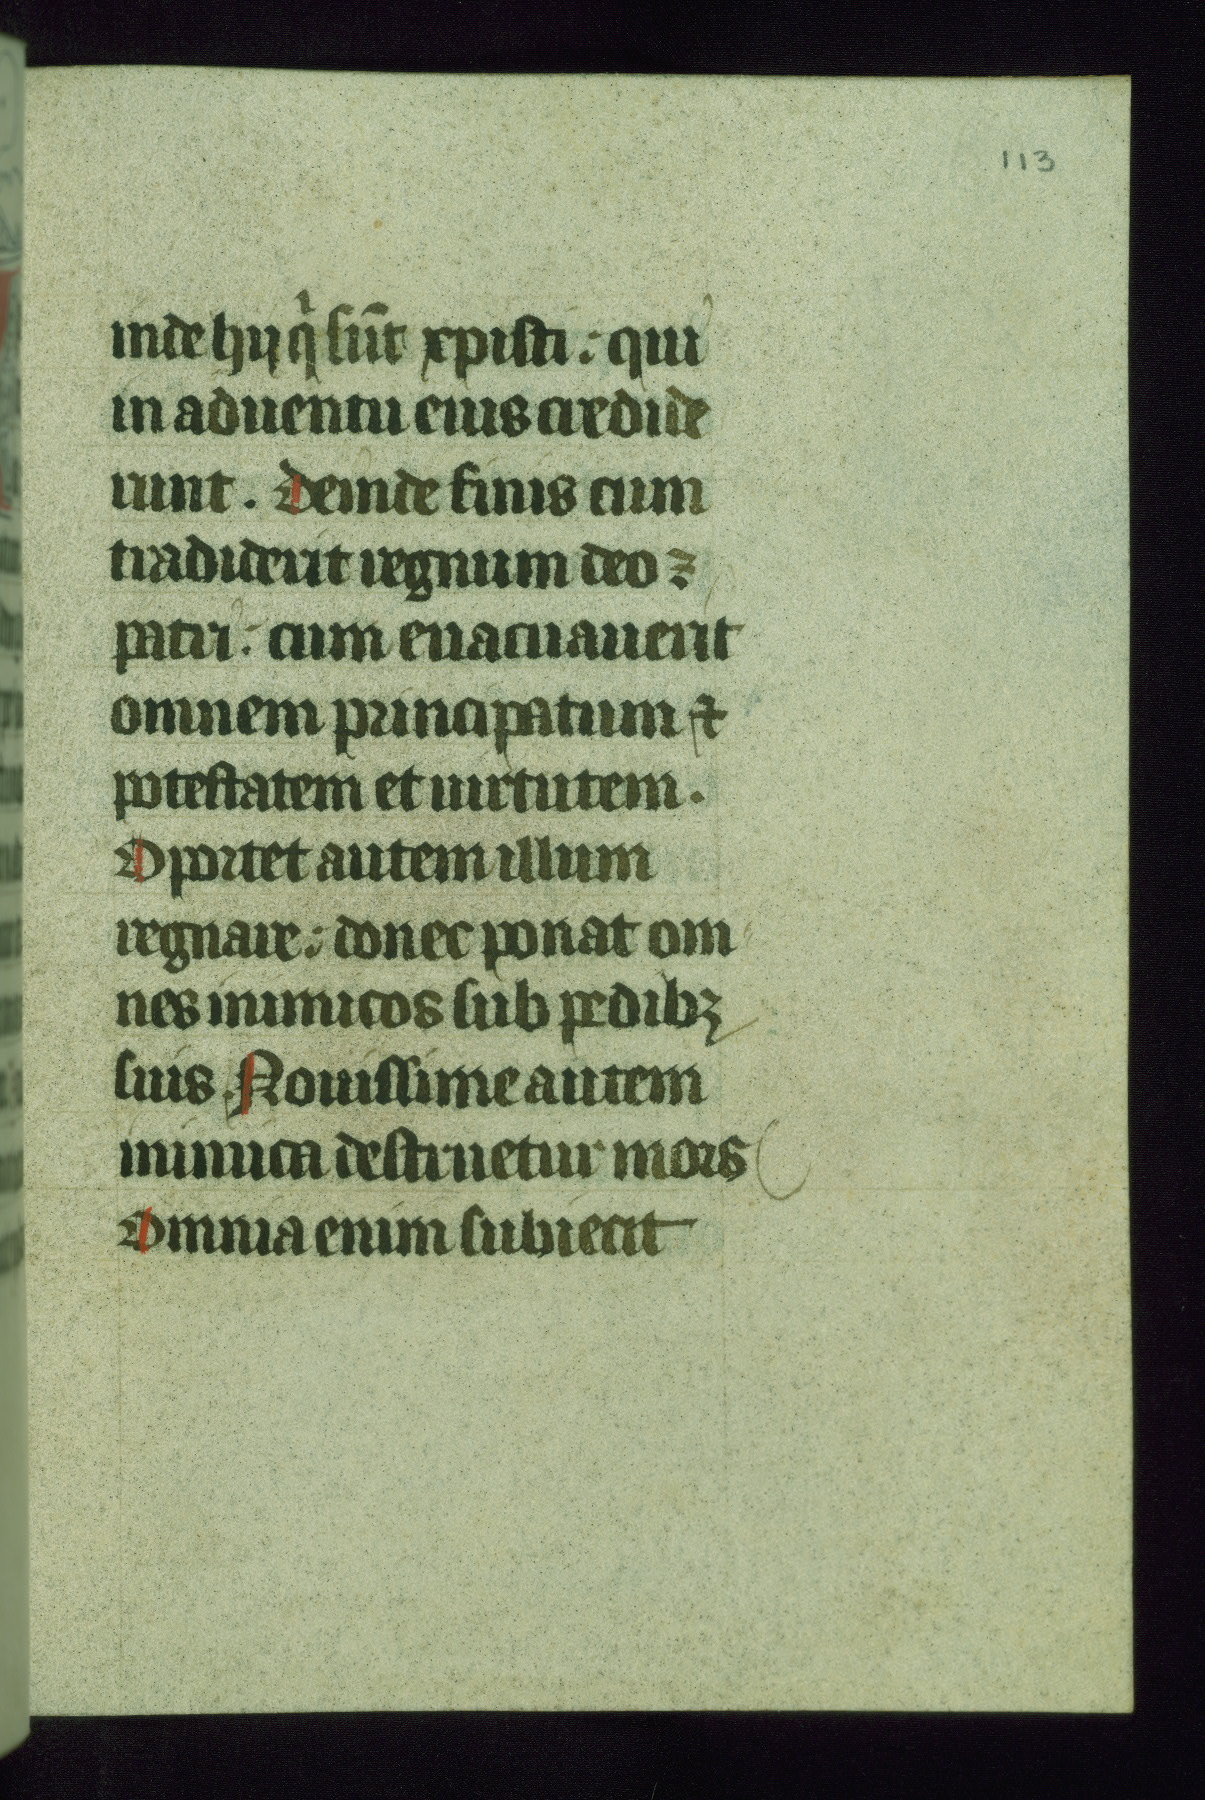 113
inde hij qͥ sūt xpisti : qui
in aduentu eius credide
runt . Deinde finis cum
tradiderit regnum deo ⁊
patri : cum euacuauerit
omnem principatum ⁊
potestatem et uirtutem .
Oportet autem illum
regnare : donec ponat om
nes inimicos sub pedibꝫ
suis . Nouissime autem
inimica destruetur mors
Omnia enim subiecit